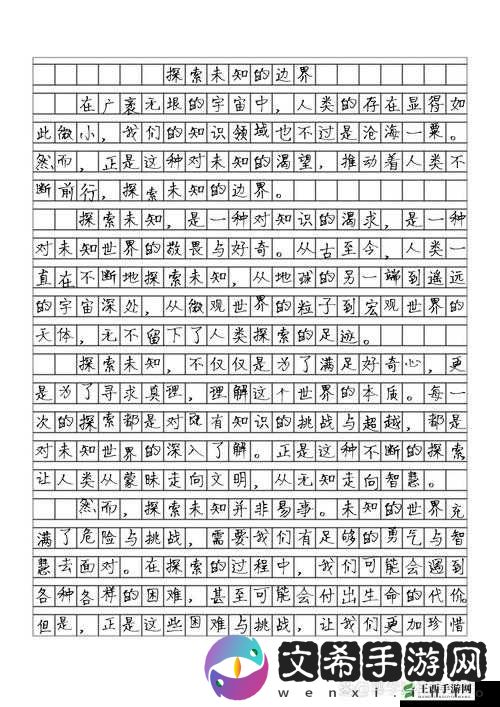 探索未知的边界
在广袤无垠的宇宙中，人类的存在显得如
此微小，我们的知识领域也不过是沧海一粟。
然而，正是这种对未知的渴望，推动着人类不
断前行，探索未知的边界。
探索未知，是一种对知识的渴求，是一种
对未知世界的敬畏与好奇。从古至今，人类一
直在不断地探索未知，从地球的另一端到遥远
的宇宙深处，从微观世界的粒子到宏观世界的
天体，无不留下了人类探索的足迹。
探索未知，不仅仅是为了满足好奇心，更
是为了寻求真理，理解这个世界的本质。每一
次的探索都是对既有知识的挑战与超越，都是
对未知世界的深入了解。正是这种不断的探索
让人类从蒙昧走向文明，从无知走向智慧。
然而，探索未知并非易事。未知的世界充
满了危险与挑战，需要我们有足够的勇气与智
慧去面对。在探索的过程中，我们可能会遇到
各种各样的困难，甚至可能会付出生命的代价。
但是，正是这些困难与挑战，让我们更加珍惜
文希手游网
wenxi.
王酉手游网